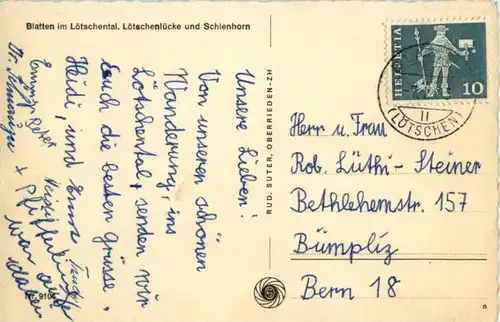 Blatten im Lötschental. Lötschenlücke und Schienhorn
Unsere Lieben!
Von unseren schönen
Wanderung, ins
Lötschental, senden wir
Euch die besten Grüsse.
Heidi, und Ernst
war auch
dabei
Nr. 9104
RUD. SUTER, OBERRIEDEN-ZH
HELVETIA
10
II
(LÖTSCHEN)
Herr u. Frau
Rob. Lüthi-Steiner
Bethlehemstr. 157
Bümpliz
Bern 18